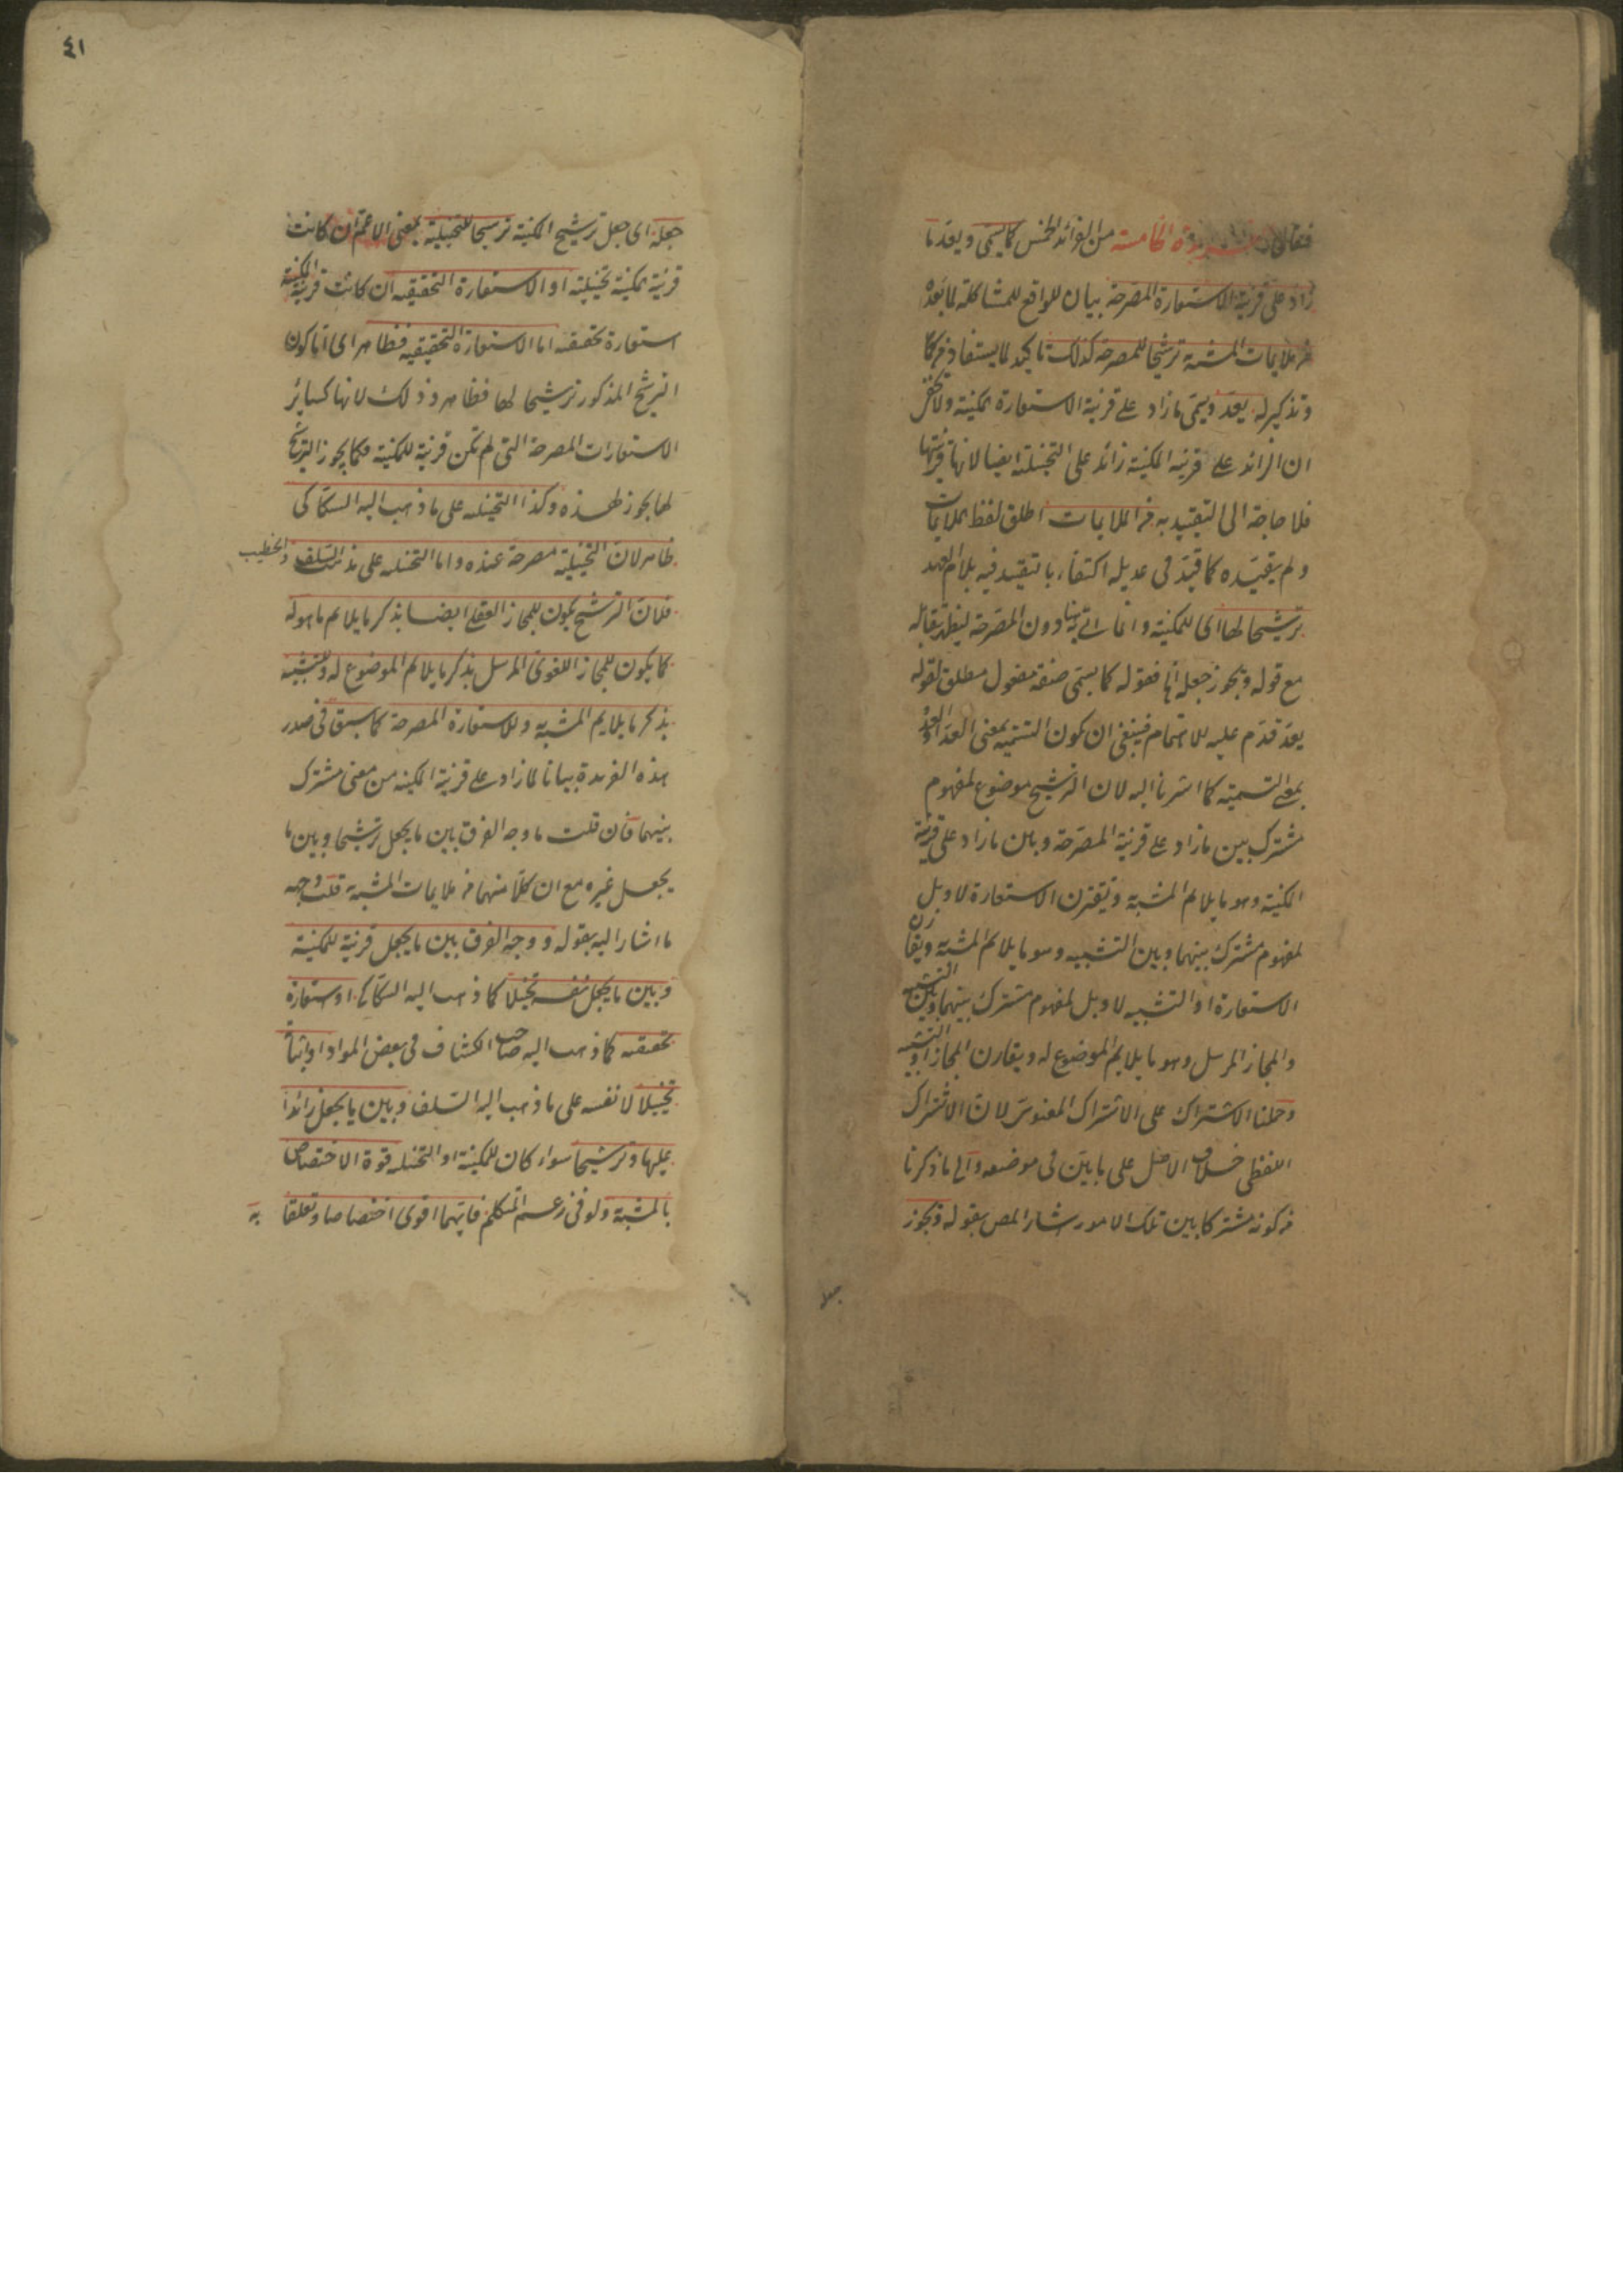 فقال الفريدة الخامسة من الفوائد الخمس كما يسمى ويعد ما
زاد على قرينة الاستعارة المصرحة بيان للواقع للمشاكلة لما بعده
من ملايمات المشبه ترشيحا للمصرحة كذلك تاكيد لما يستفاد من كما
وتذكير له يعد ويسمى ما زاد على قرينة الاستعارة بمكنية ولا يخفى
ان الزائد على قرينة المكنية زائد على التخييلية ايضا لانها قرينتها
فلا حاجة الى التقييد به من الملايمات اطلق لفظ الملايمات
ولم يقيده كما قيد في عديله اكتفاء بالتقييد فيه بلام العهد
ترشيحا لها اي للمكنية وانما اتى به هنا دون المصرحة ليظهر تقابله
مع قوله ويجوز جعله اه فقوله كما يسمى صفة مفعول مطلق لقوله
يعد قدم عليه للاهتمام فينبغي ان يكون التسمية بمعنى العد او العد
بمعنى التسمية كما اشرنا اليه لان الترشيح موضوع لمفهوم
مشترك بين ما زاد على قرينة المصرحة وبين ما زاد على قرينة
المكنية وهو ما يلايم المشبه ويقترن الاستعارة لا وبل
لمفهوم مشترك بينهما وبين التشبيه وهو ما يلايم المشبه ويقارن
الاستعارة او التشبيه لا وبل لمفهوم مشترك بينهما وبين التشبيه
والمجاز المرسل وهو ما يلايم الموضوع له ويقارن المجاز او التشبيه
وحملنا الاشتراك على الاشتراك المعنوي لان الاشتراك
اللفظي خلاف الاصل على ما بين في موضعه والى ما ذكرنا
من كونه مشتركا بين تلك الامور اشار المص بقوله ويجوز
٤١
جعله اي جعل ترشيح المكنية ترشيحا للتخييلية بمعنى الاعم ان كانت
قرينة مكنية تخييلية او الاستعارة التحقيقية ان كانت قرينة المكنية
استعارة تحقيقية اما الاستعارة التحقيقية فظاهر اي اما كون
الترشيح المذكور ترشيحا لها فظاهر وذلك لانها كسائر
الاستعارات المصرحة التي لم تكن قرينة للمكنية فكما يجوز الترشيح
لها يجوز لهذه وكذا التخييلية على ما ذهب اليه السكاكي
ظاهر لان التخييلية مصرحة عنده واما التخييلية على مذهب السلف والخطيب
فلان الترشيح يكون للمجاز العقلي ايضا بذكر ما يلايم ما هو له
كما يكون للمجاز اللغوي المرسل بذكر ما يلايم الموضوع له وللتشبيه
بذكر ما يلايم المشبه به وللاستعارة المصرحة كما سبق في صدر
هذه الفريدة بيانا لما زاد على قرينة المكنية من معنى مشترك
بينهما فان قلت ما وجه الفرق بين ما يجعل ترشيحا وبين ما
يجعل غيره مع ان كلا منهما من ملايمات المشبه به قلت وجهه
ما اشار اليه بقوله ووجه الفرق بين ما يجعل قرينة للمكنية
وبين ما يجعل نفسه تخييلا كما ذهب اليه السكاكي او استعارة
تحقيقية كما ذهب اليه صاحب الكشاف في بعض المواد او اثباته
تخييلا لا نفسه على ما ذهب اليه السلف وبين ما يجعل زائدا
عليها وترشيحا سواء كان للمكنية او التخييلية قوة الاختصاص
بالمشبه به ولو في زعم المتكلم فايهما اقوى اختصاصا وتعلقا به